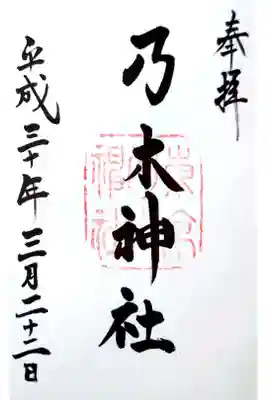 奉拝
乃木神社
平成三十年三月二十二日